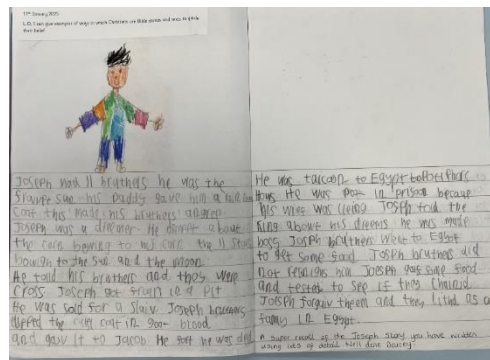 17th January 2025
L.O. I can give examples of ways in which Christians use Bible stories and texts to guide
their belief
Joseph had 11 brothers he was the
sun his Daddy gave him a
coat this made his brothers
Joseph was a dreamer He dreamt about
the corn bowing to his corn the 11 stars
to the sun and the moon
He told his brothers and they were
cross Joseph got in a Pit
He was sold for a Slaiv Joseph brothers
dipped the coat in goat blood
and gave it to Jacob He he was ded
He was to Egypt
He was in prison becaue
his wife was Joseph told the
King about his dreams he was made
boss Joseph brothers went to Egypt
to get some food Joseph brothers did
not him Joseph gave some food
and tested to see if they
Joseph them and they as a
famy in Egypt.
A super recall of the Joseph story you have written
using lots of detail Well done